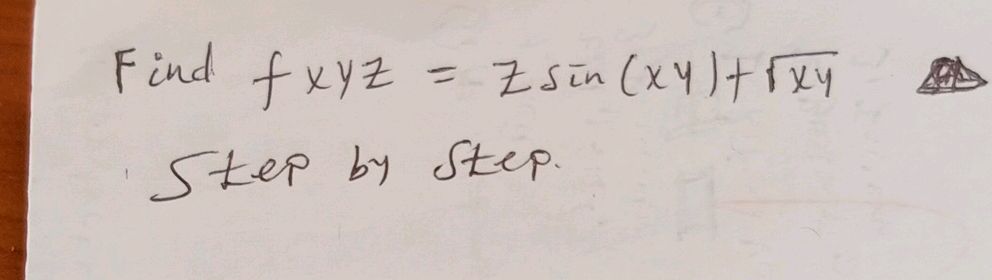 Find fxyz = z sin(xy)+√xy
Step by Step.